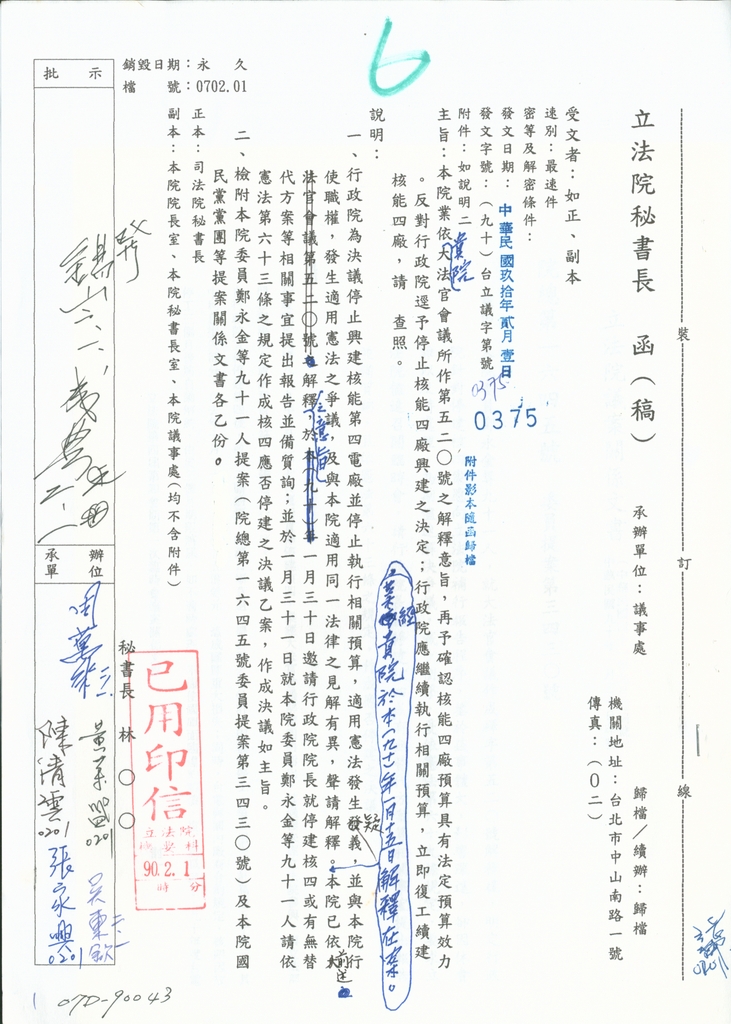 6
立法院秘書長　函（稿）
承辦單位：議事處
歸檔／續辦：歸檔
機關地址：台北市中山南路一號
傳真：（０二）
受文者：如正、副本
速別：最速件
密等及解密條件：
發文日期：中華民國玖拾年貳月壹日
發文字號：（九十）台立議字第號
0375
0375
附件：如說明二
附件影本隨函歸檔
主旨：本院業依大法官會議所作第五二○號之解釋意旨，再予確認核能四廠預算具有法定預算效力
貴院
。反對行政院逕予停止核能四廠興建之決定；行政院應繼續執行相關預算，立即復工續建
核能四廠，請　查照。
說明：
一、行政院為決議停止興建核能第四電廠並停止執行相關預算，適用憲法發生發義，並與本院行
疑
使職權，發生適用憲法之爭議，及與本院適用同一法律之見解有異，聲請解釋。本院已依大
，業經貴院於本（九十）年一月十五日解釋在案。
前述
法官會議第五二○號解釋，於本（九十）年一月三十日邀請行政院院長就停建核四或有無替
意旨
代方案等相關事宜提出報告並備質詢；並於一月三十一日就本院委員鄭永金等九十一人請依
憲法第六十三條之規定作成核四應否停建之決議乙案，作成決議如主旨。
二、檢附本院委員鄭永金等九十一人提案（院總第一六四五號委員提案第三四三○號）及本院國
民黨黨團等提案關係文書各乙份。
正本：司法院秘書長
副本：本院院長室、本院秘書長室、本院議事處（均不含附件）
銷毀日期：永　久
檔　　號：0702.01
秘書長　林　○　○
已用印信
立法院
90.2.1
時　分
批　示
發
承辦單位
周萬來
陳清雲
0201
0201
張家興
0201
吳東欽
07D-90043
裝
訂
線